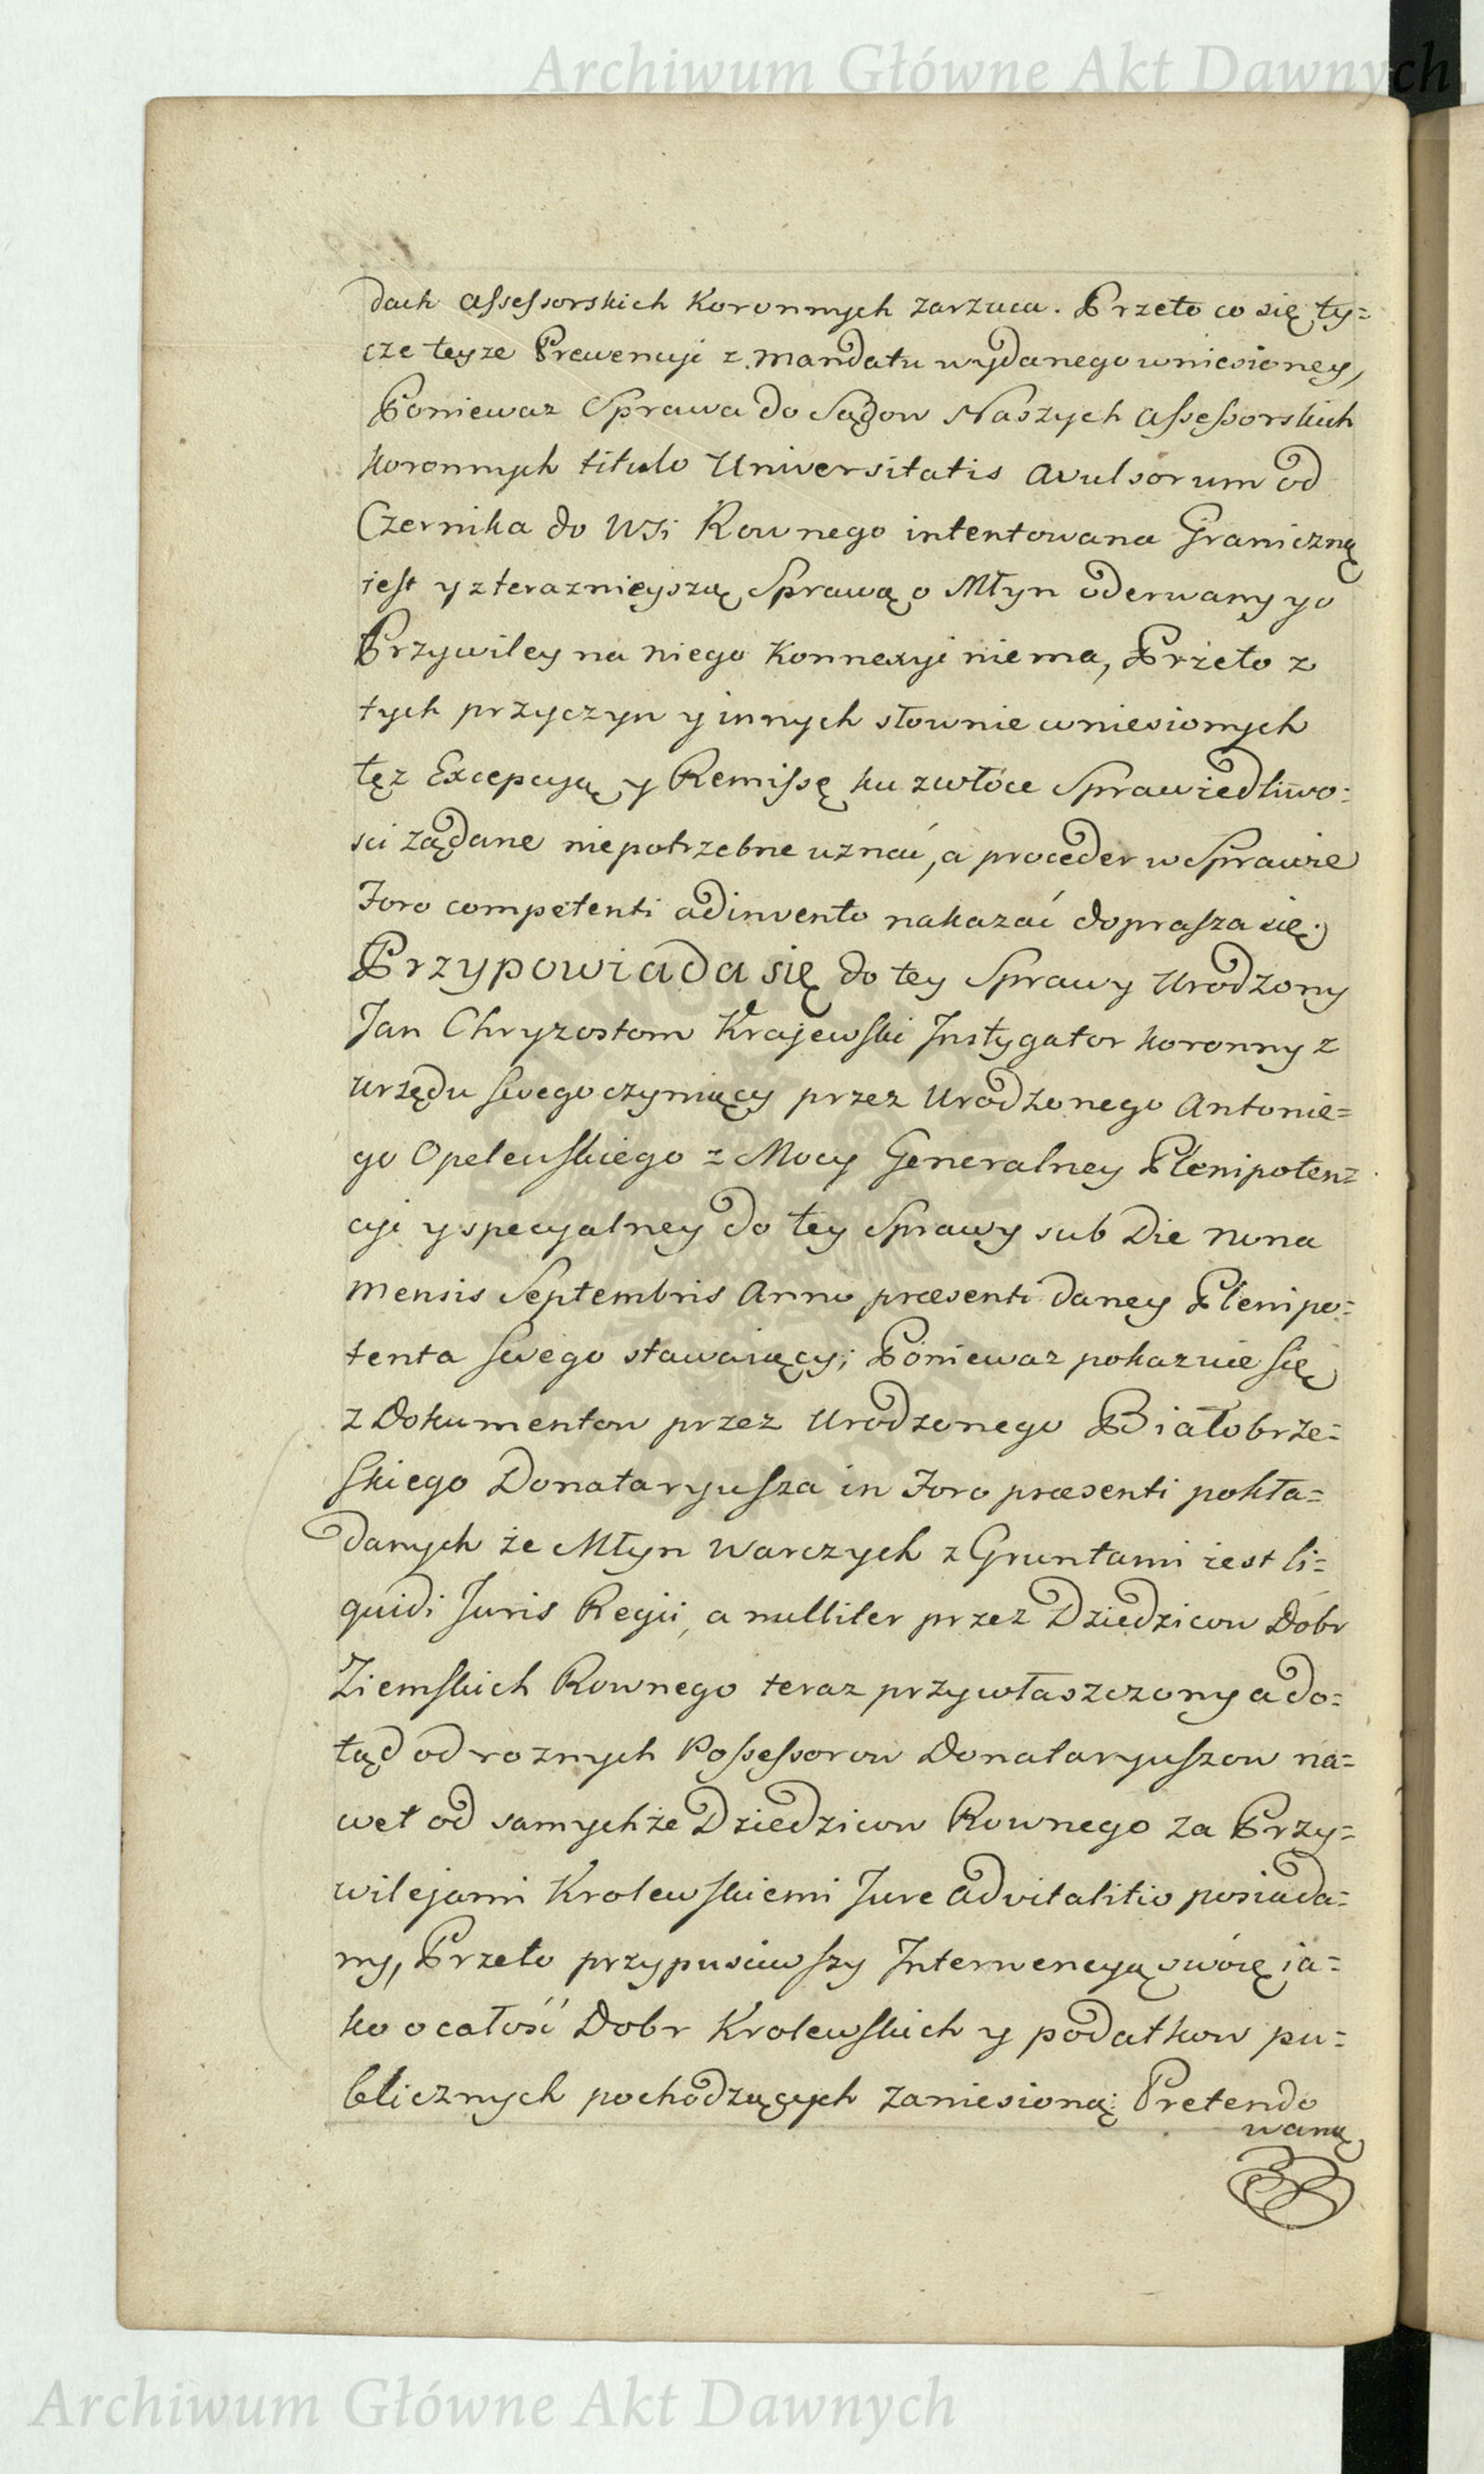 Archiwum Główne Akt Dawnych
dach assessorskich Koronnych zarzuca. Przeto co się ty=
cze teyze Prewencyi z mandatu wydanego wniesioney,
Poniewaz Sprawa do Sądow Naszych assessorskich
koronnych titulo Universitatis avulsorum od
Czernika do Wsi Rownego intentowana Graniczną
iest y z terazniejszą Sprawą o Młyn oderwany y o
Przywiley na niego Konnexyi niema, Przeto z
tych przyczyn y innych słownie wniesionych
tęz Excepcyą y Remissę ku zwłóce Sprawiedliwo=
sci żądane niepotrzebne uznać, a proceder w Sprawie
Foro competenti adinvento nakazać doprasza się.
Przypowiada się do tey Sprawy Urodzony
Jan Chryzostom Krajewski Instygator koronny z
urzędu swego czyniący przez Urodzonego Antonie=
go Opelewskiego z Mocy Generalney Plenipoten=
cyi y specyalney do tey Sprawy sub Die nona
mensis Septembris Anno præsenti daney Plenipo=
tenta swego stawaiący; Poniewaz pokazuie się
z Dokumentow przez Urodzonego Białobrze=
skiego Donataryusza in Foro præsenti pokła=
danych że Młyn Warczych z Gruntami iest li=
quidi Juris Regii, a nulliter przez Dziedzicow Dobr
Ziemskich Rownego teraz przywłaszczony a do=
tąd od roznych Possessorow Donataryuszow na=
wet od samychże Dziedzicow Rownego za Przy=
wilejami Krolewskiemi Jure advitalitio posiada=
ny, Przeto przypusciwszy Interwencyą swoię ia=
ko o całość Dobr Krolewskich y podatkow pu=
blicznych pochodzących zaniesioną; Pretendo
waną
Archiwum Główne Akt Dawnych